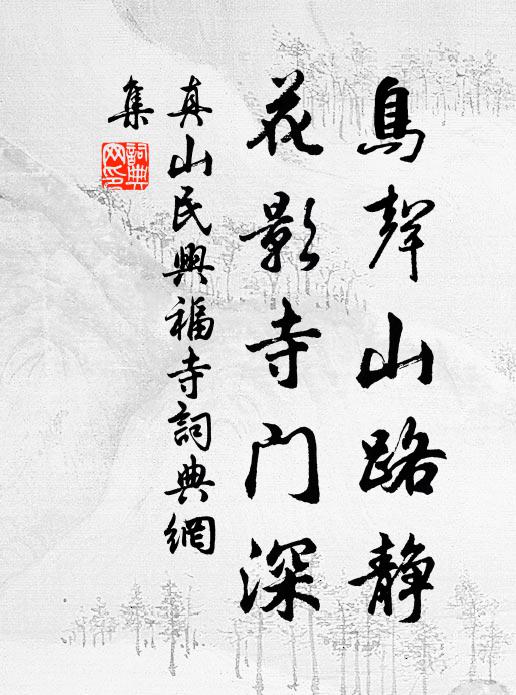 鳥聲山路静
花影寺门深
真山民興福寺詞典網
集
詞典網印